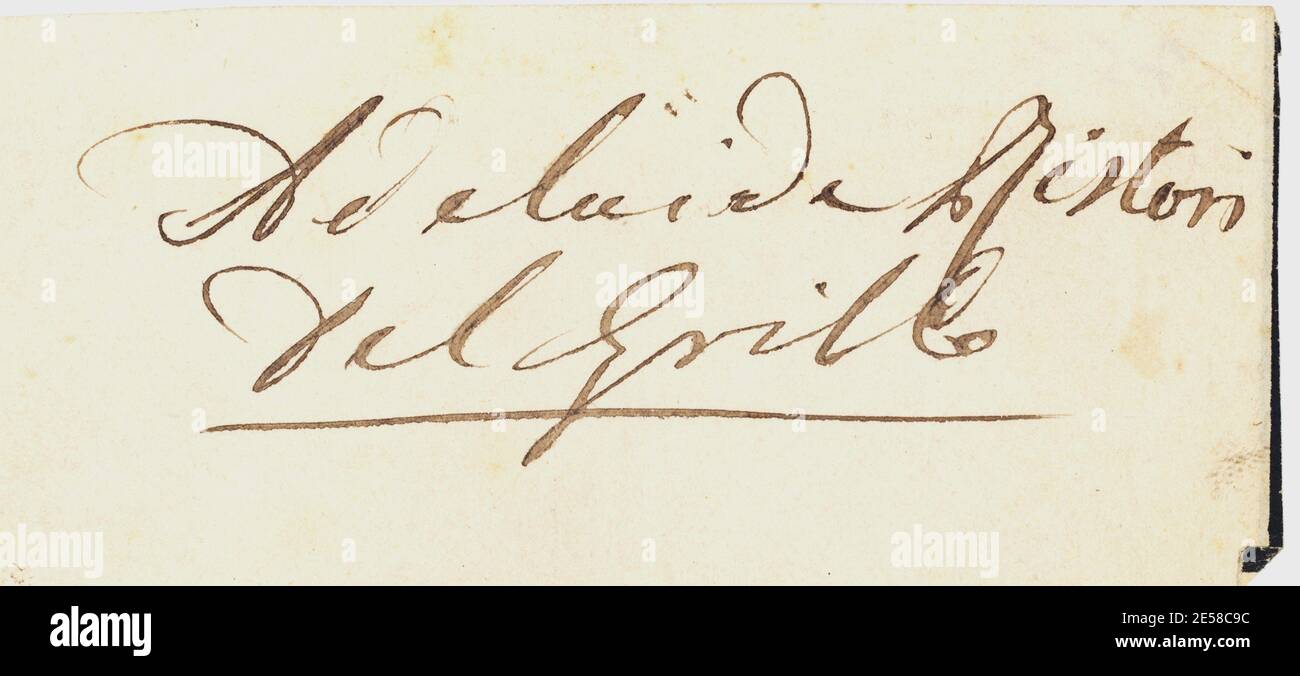 Adelaïde Ristori
del Grillo
alamy
alamy
alamy
alamy
alamy
alamy
Image ID: 2E58C9C
www.alamy.com